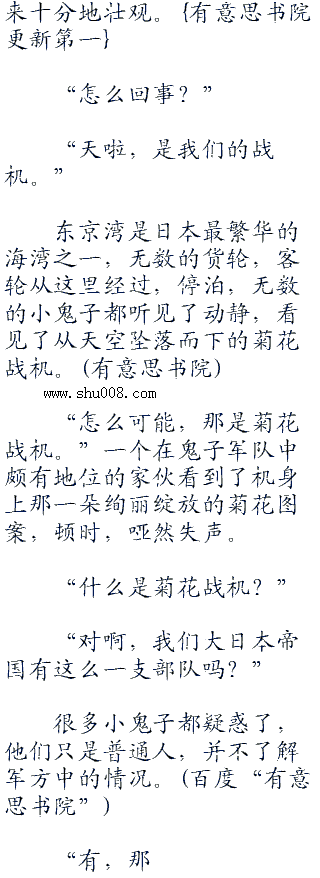 来十分地壮观。{有意思书院
更新第一}
“怎么回事？”
“天啦，是我们的战
机。”
东京湾是日本最繁华的
海湾之一，无数的货轮，客
轮从这里经过，停泊，无数
的小鬼子都听见了动静，看
见了从天空坠落而下的菊花
战机。(有意思书院)
www.shu008.com
“怎么可能，那是菊花
战机。”一个在鬼子军队中
颇有地位的家伙看到了机身
上那一朵绚丽绽放的菊花图
案，顿时，哑然失声。
“什么是菊花战机？”
“对啊，我们大日本帝
国有这么一支部队吗？”
很多小鬼子都疑惑了，
他们只是普通人，并不了解
军方中的情况。(百度“有意
思书院”)
“有，那